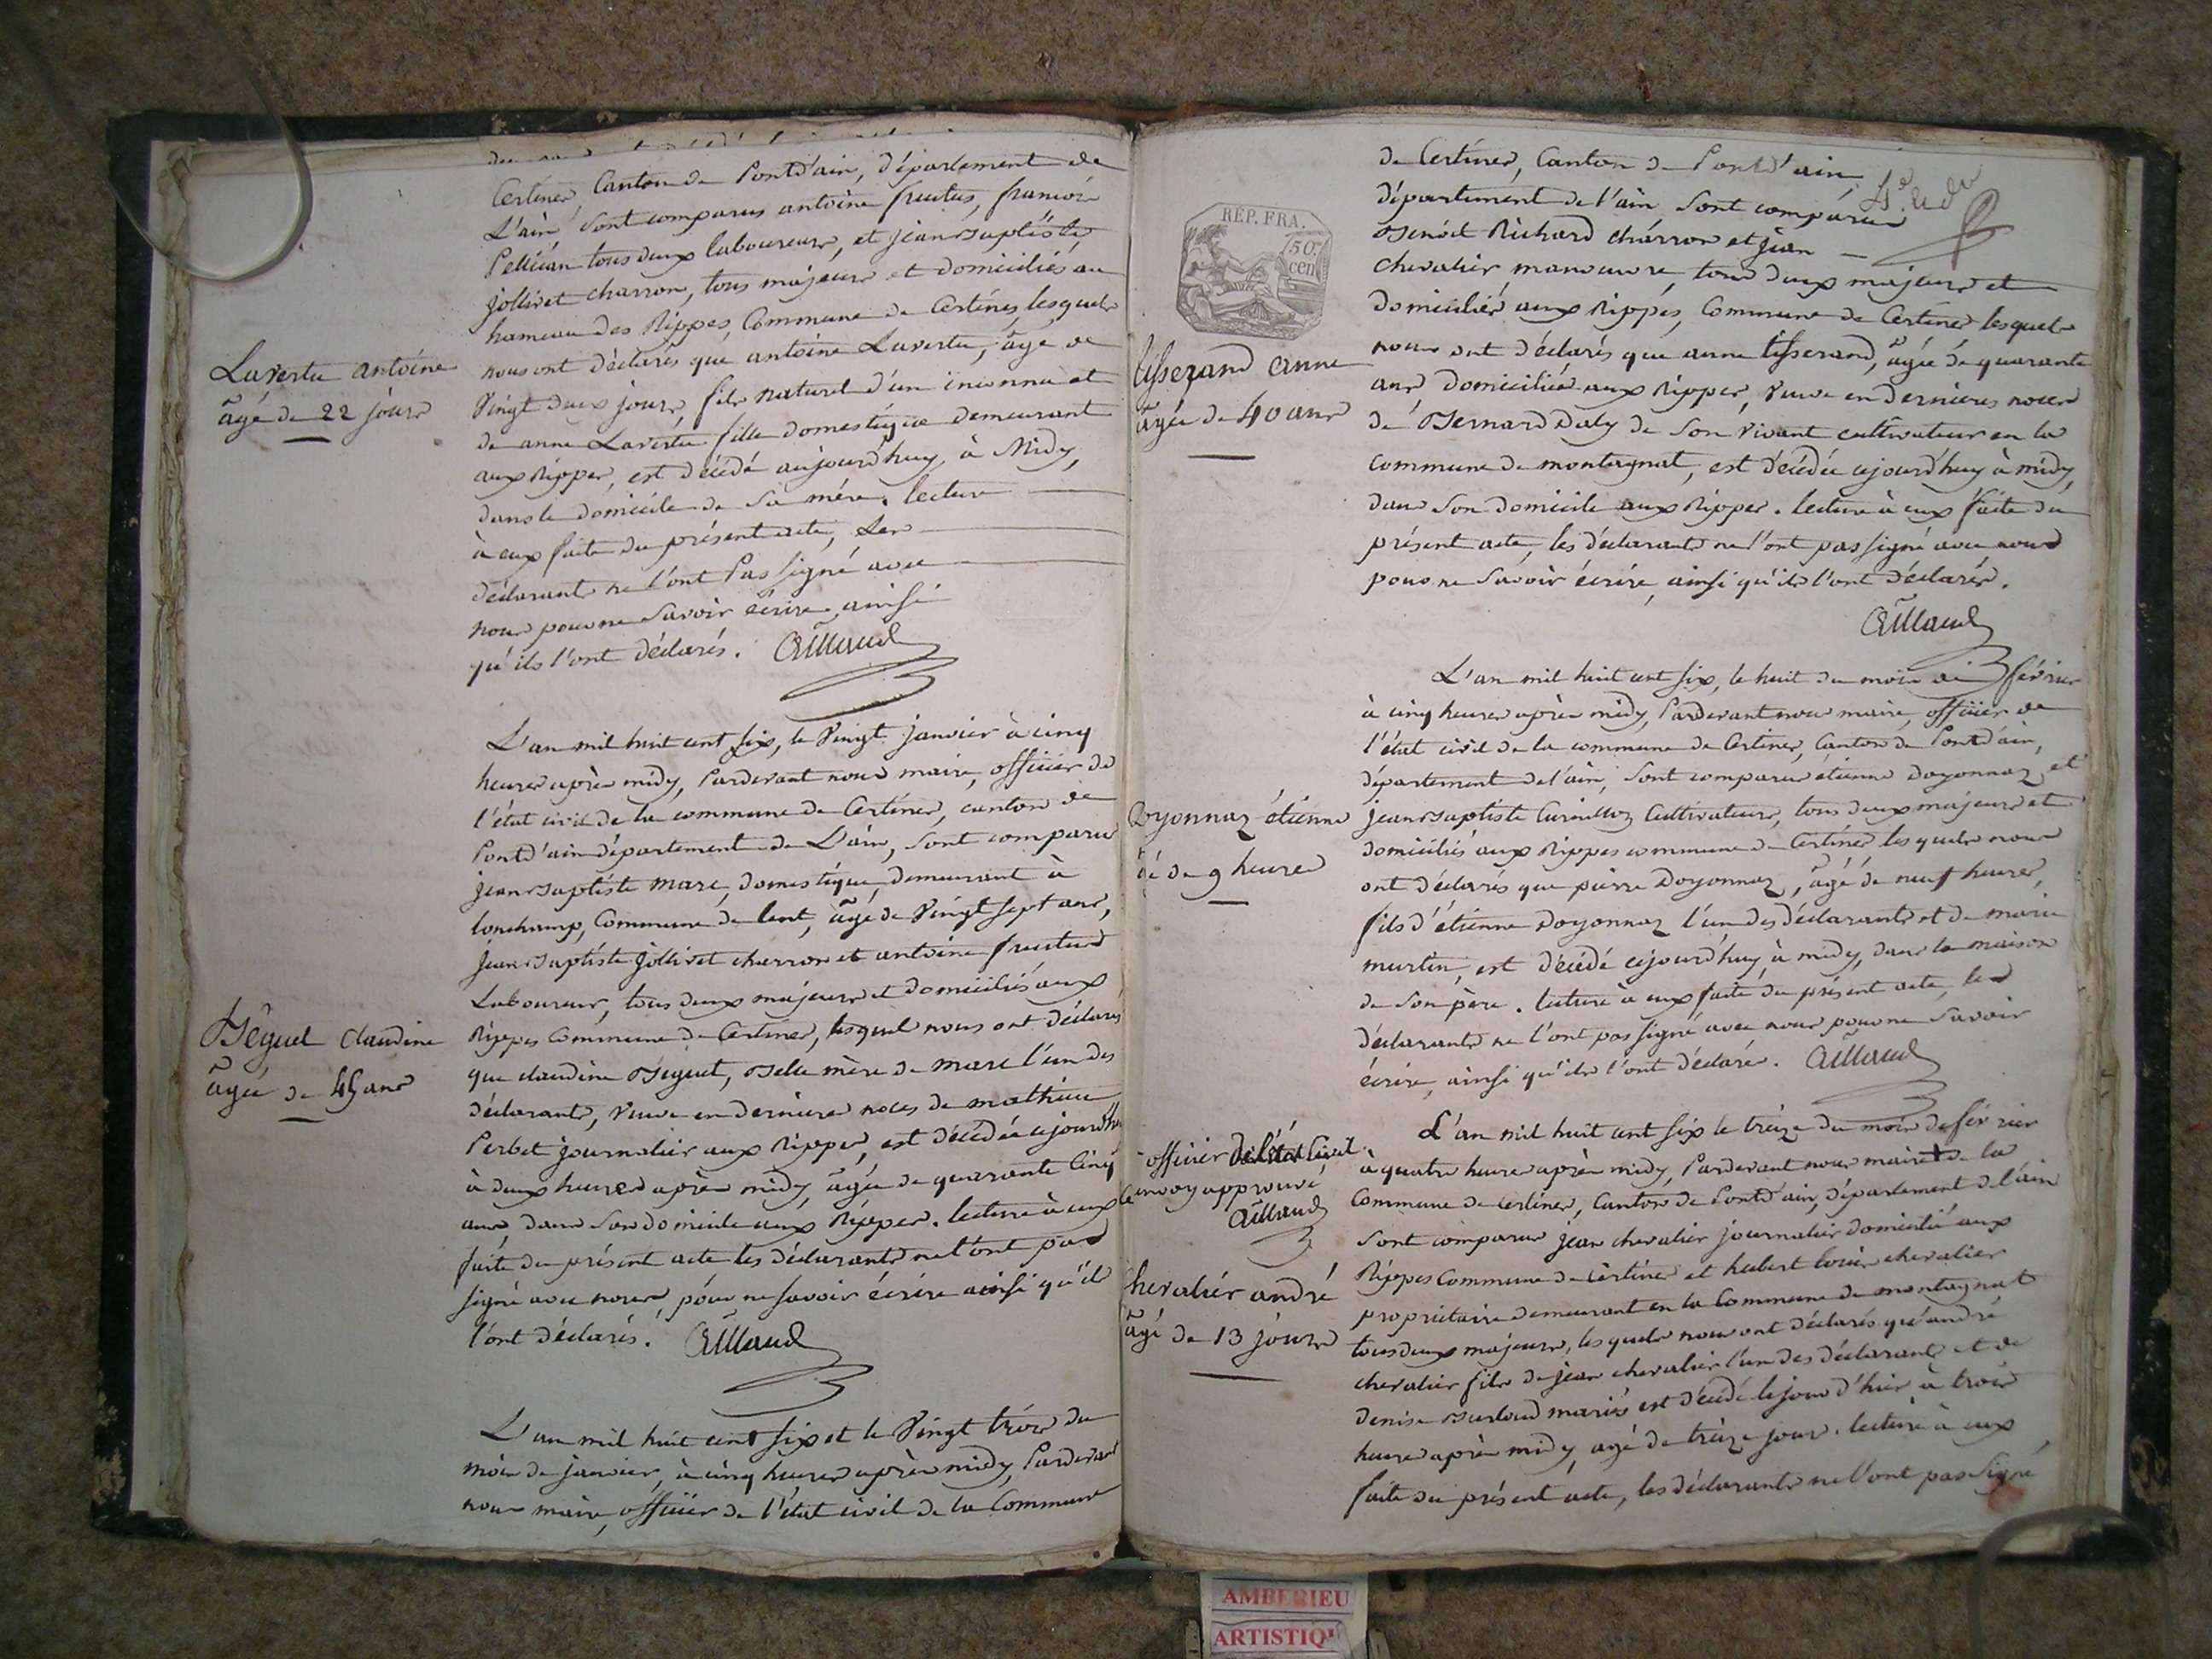 Certines, Canton de Pontd'ain, département de
L'ain sont comparus antoine fructus, francois
Pellician tous deux laboureurs, et jean baptiste
jollivet charron, tous majeurs et domiciliés au
hameau des Rippes, Commune de Certines, lesquels
nous ont déclarés que antoine Lavertu, âgé de
Vingt deux jours, fils naturel d'un inconnu et
de anne Lavertu fille domestique demeurant
aux Rippes, est décédé aujourd'huy, à Midy,
dans le domicile de sa mère. lecture
à eux faite du présent acte, Les
déclarants ne l'ont Pas signé avec
nous pour ne savoir écrire, ainsi
qu'ils l'ont déclarés. Aillaud
Lavertu antoine
âgé de 22 jours
L'an mil huit cent six, le Vingt janvier à cinq
heures après midy, Pardevant nous maire, officier de
l'état civil de la commune de Certines, canton de
Pontd'ain département de L'ain, sont comparus
jean baptiste marc, domestique, demeurant à
lonchamp, Commune de lent, âgé de Vingt sept ans,
jean baptiste jollivet charron et antoine fructus
Laboureur, tous deux majeurs et domiciliés aux
Rippes Commune de Certines, lesquel nous ont déclarés
que claudine Béguet, Belle mère de marc l'un des
déclarants, Veuve en dernieres noces de mathieu
Perbet journalier aux Rippes, est décédée cejourd'hu
à deux heures après midy, âgée de quarante Cinq
ans, dans son domicile aux Rippes. lecture à eux
faite du présent acte les déclarants ne l'ont pas
signé avec nous, pour ne savoir écrire ainsi qu'ils
l'ont déclarés. Aillaud
Béguet Claudine
âgée de 45 ans
L'an mil huit cent six et le Vingt trois du
mois de janvier, à cinq heures après midy, Pardevant
nous maire, officier de l'état civil de la Commune
de Certines, Canton de Pontd'ain,
département de l'ain sont comparus
Benoit Richard charron et jean
chevalier manouvre, tous deux majeurs et
domiciliés aux Rippes, Commune de Certines lesquels
nous ont déclarés que anne tisserand, âgée de quarante
ans domiciliée aux Rippes, Veuve en dernieres noces
de Bernard Daly de son vivant cultivateur en la
commune de montagnat, est décédée cejourd'huy à midy,
dans son domicile aux Rippes. lecture à eux faite du
présent acte, les déclarants ne l'ont pas signé avec nous
pour ne savoir écrire, ainsi qu'ils l'ont déclarés.
Aillaud
REP. FRA.
50.
cen
tisserand anne
âgée de 40 ans
L'an mil huit cent six, le huit du mois de février
à cinq heures après midy, Pardevant nous maire, officier de
l'état civil de la commune de Certines, Canton de Pontd'ain,
département de l'ain, sont comparus étienne Doyonnaz et
jean baptiste Cultivateurs, tous deux majeurs et
domiciliés aux Rippes commune de Certines lesquels nous
ont déclarés que pierre Doyonnaz, âgé de neuf heures,
fils d'étienne Doyonnaz l'un des déclarants et de marie
martin, est décédé cejourd'huy à midy, dans la maison
de son père. lecture à eux faite du présent acte, les
déclarants ne l'ont pas signé avec nous pour ne savoir
écrire, ainsi qu'ils l'ont déclarés. Aillaud
Doyonnaz étienne
âgé de 9 heures
L'an mil huit cent six le treize du mois de février
à quatre heures après midy, Pardevant nous maire de la
Commune de Certines, Canton de Pontd'ain, département de l'ain
sont comparus jean chevalier journalier domicilié aux
Rippes Commune de Certines et hubert louis chevalier
propriétaire demeurant en la Commune de montagnat
tous deux majeurs, lesquels nous ont déclarés qu'andré
chevalier fils de jean chevalier l'un des déclarants et de
denise burloud mariés est décédé le jour d'hier à trois
heures après midy, agé de treize jours. lecture à eux
faite du présent acte, les déclarants ne l'ont pas signé
officier de l'état Civil
renvoy approuvé
Aillaud
Chevalier andré
âgé de 13 jours
AMBERIEU
ARTISTIQU